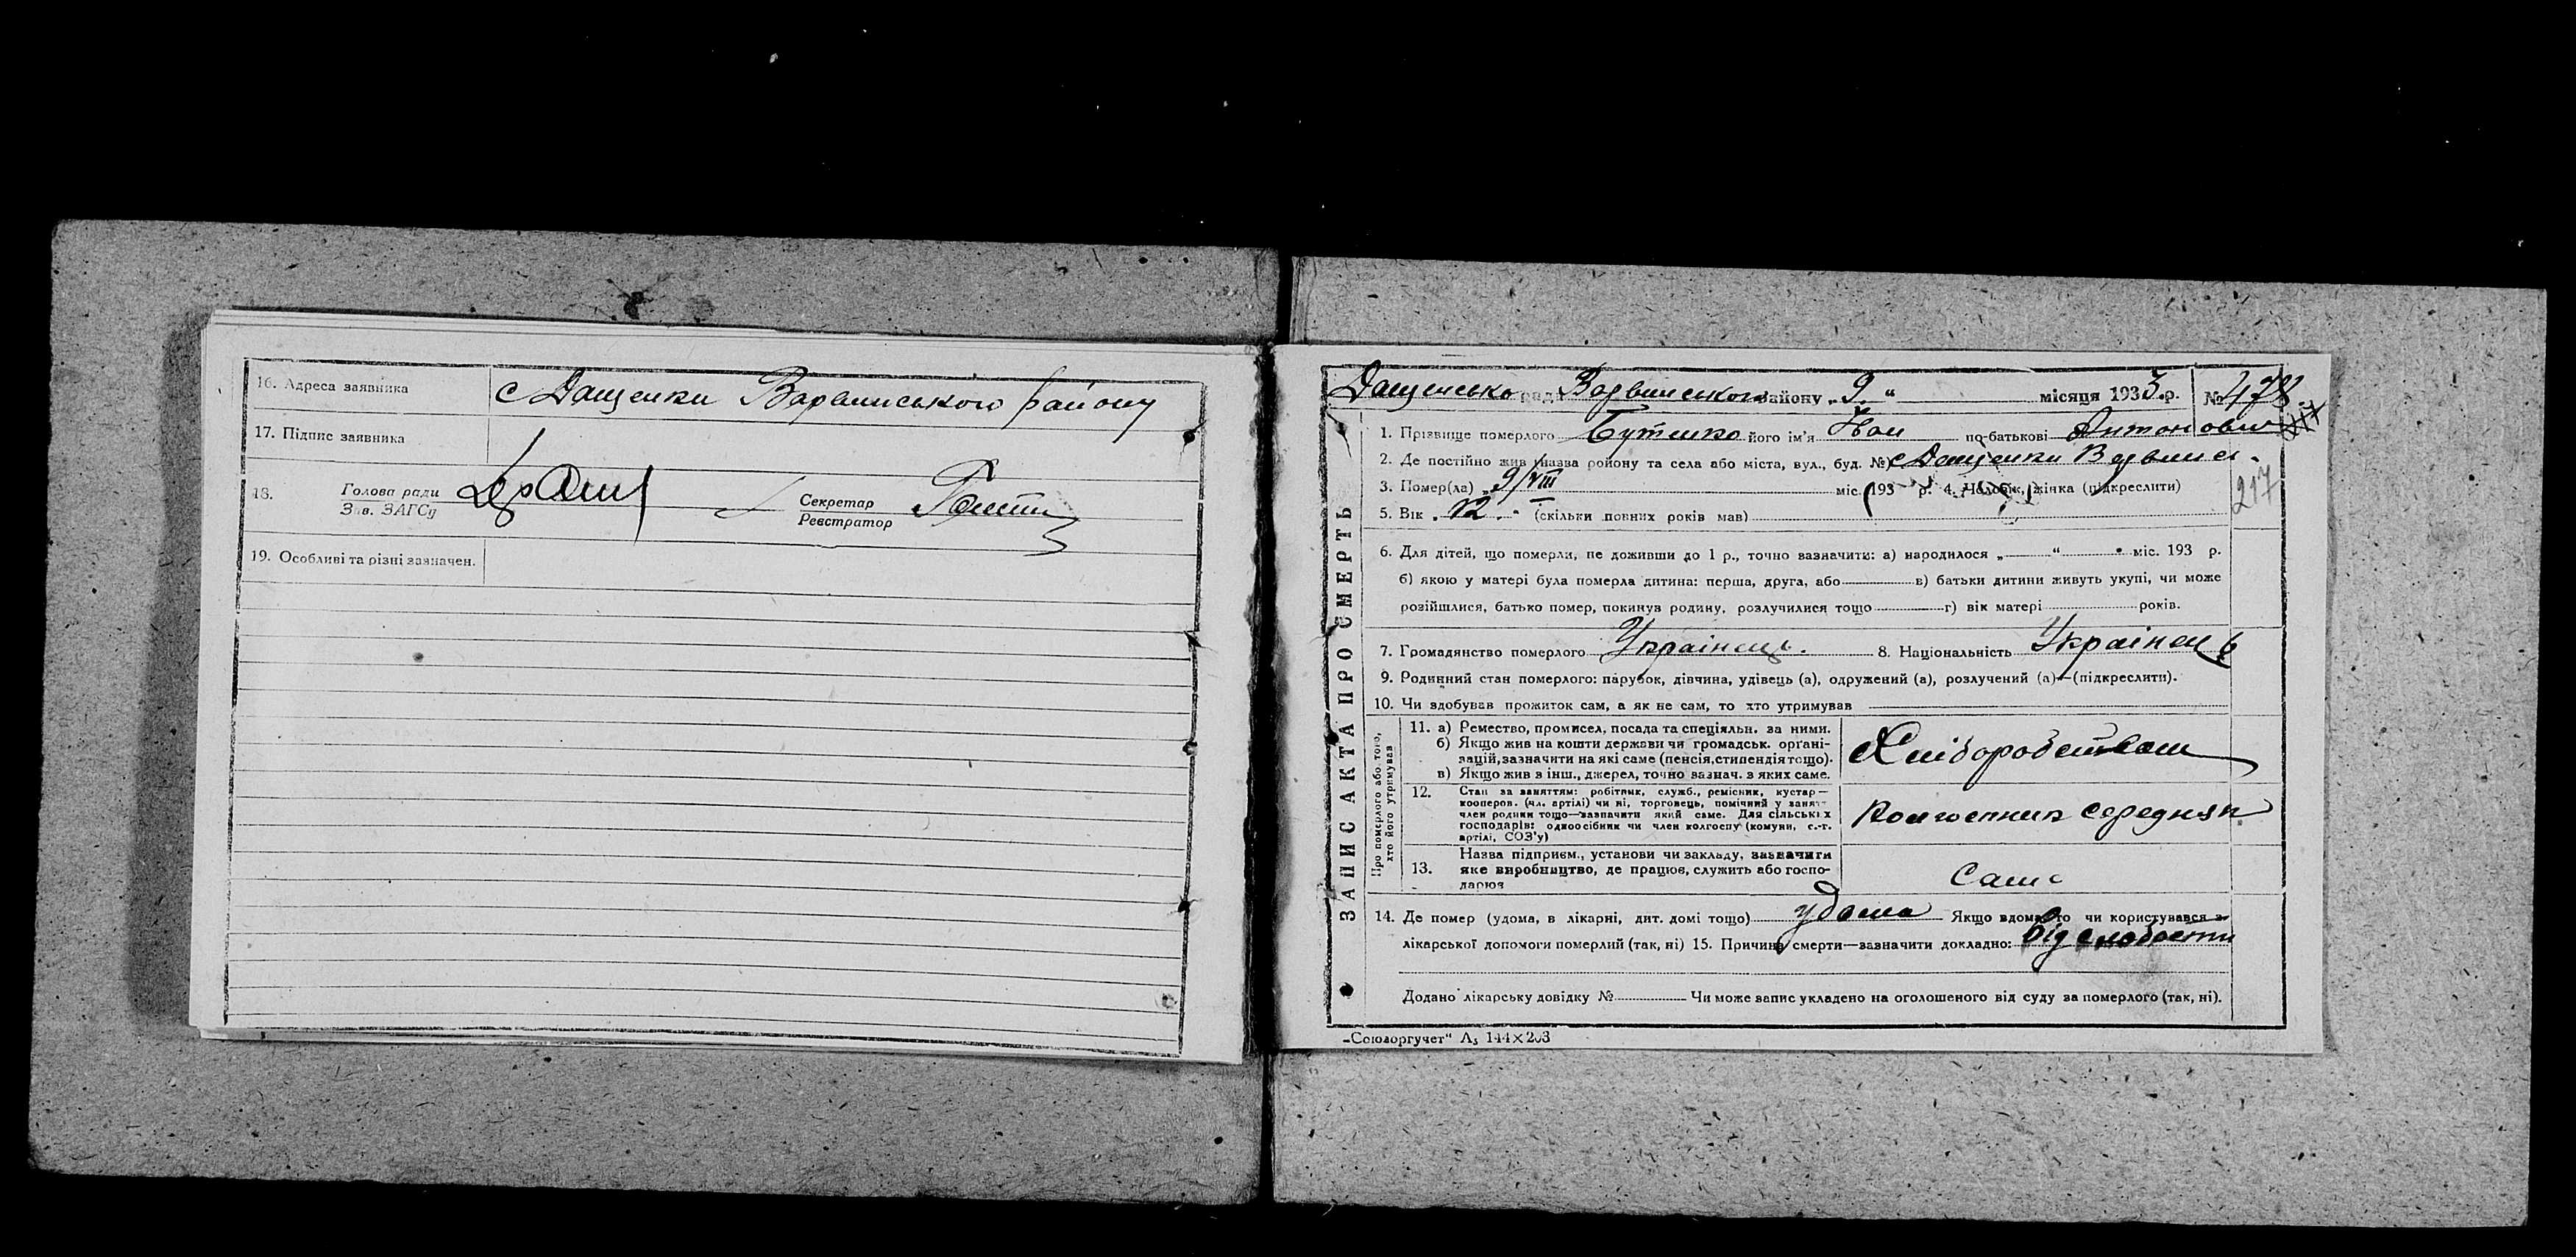 16. Адреса заявника с Дащенки Варвинського району
17. Підпис заявника
18. Голова ради
Зав. ЗАГСу
Секретар
Реєстратор
19. Особливі та різні зазначен.
Дащенсько ради Варвинського району „9“ місяця 1933 р. № 478.
ЗАПИС АКТА ПРО СМЕРТЬ
1. Прізвище померлого Бутенко його ім'я Іван по-батькові Антонович
2. Де постійно жив (назва району та села або міста, вул., буд. №) с Дащенки Варвинс.
3. Помер(ла) „9/VIII міс. 193 р. 4. Чоловік, жінка (підкреслити)
217
5. Вік 12 (скільки повних років мав)
6. Для дітей, що померли, не доживши до 1 р., точно зазначити: а) народилося „ “ міс. 193 р.
б) якою у матері була померла дитина: перша, друга, або в) батьки дитини живуть укупі, чи може
розійшлися, батько помер, покинув родину, розлучилися тощо г) вік матері років.
7. Громадянство померлого Українець. 8. Національність Українець
9. Родинний стан померлого: парубок, дівчина, удівець (а), одружений (а), розлучений (а)—(підкреслити).
10. Чи здобував прожиток сам, а як не сам, то хто утримував
Про померлого або того,
хто його утримував
11. а) Ремество, промисел, посада та спеціяльн. за ними.
б) Якщо жив на кошти держави чи громадськ. органі-
зацій, зазначити на які саме (пенсія, стипендія тощо).
в) Якщо жив з інш., джерел, точно зазнач. з яких саме.
Хліборобством
12. Стан за заняттям: робітник, служб., ремісник, кустар—
кооперов. (чл. артілі) чи ні, торговець, помічний у занят-
член родини тощо—зазначити який саме. Для сільських
господарів: одноосібник чи член колгоспу (комуни, с.-г.
артілі, СОЗ'у)
Колгоспник середняк
13. Назва підприєм., установи чи закладу, зазначити
яке виробництво, де працює, служить або госпо-
дарює
14. Де помер (удома, в лікарні, дит. домі тощо) удома Якщо вдома, то чи користувався з
лікарської допомоги померлий (так, ні) 15. Причина смерти—зазначити докладно: Від слабости
Додано лікарську довідку № Чи може запис укладено на оголошеного від суду за померлого (так, ні).
„Союзоргучет“ А₅ 144×203